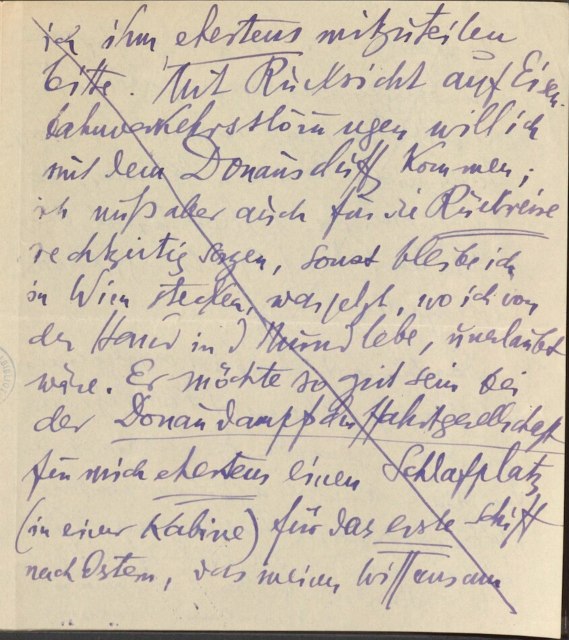 ich ihm ehestens mitzuteilen
bitte. Mit Rücksicht auf Eisen-
bahnverkehrsstörungen will ich
mit dem Donauschiff kommen;
ich muß aber auch für die Rückreise
rechtzeitig sorgen, sonst bleibe ich
in Wien stecken, was jetzt, wo ich von
der Hand in d Mund lebe, unerlaubt
wäre. Er möchte so gut sein bei
der Donaudampfschiffahrtgesellschaft
für mich ehestens einen Schlafplatz
(in einer Kabine) für das erste Schiff
nach Ostern, das meinen